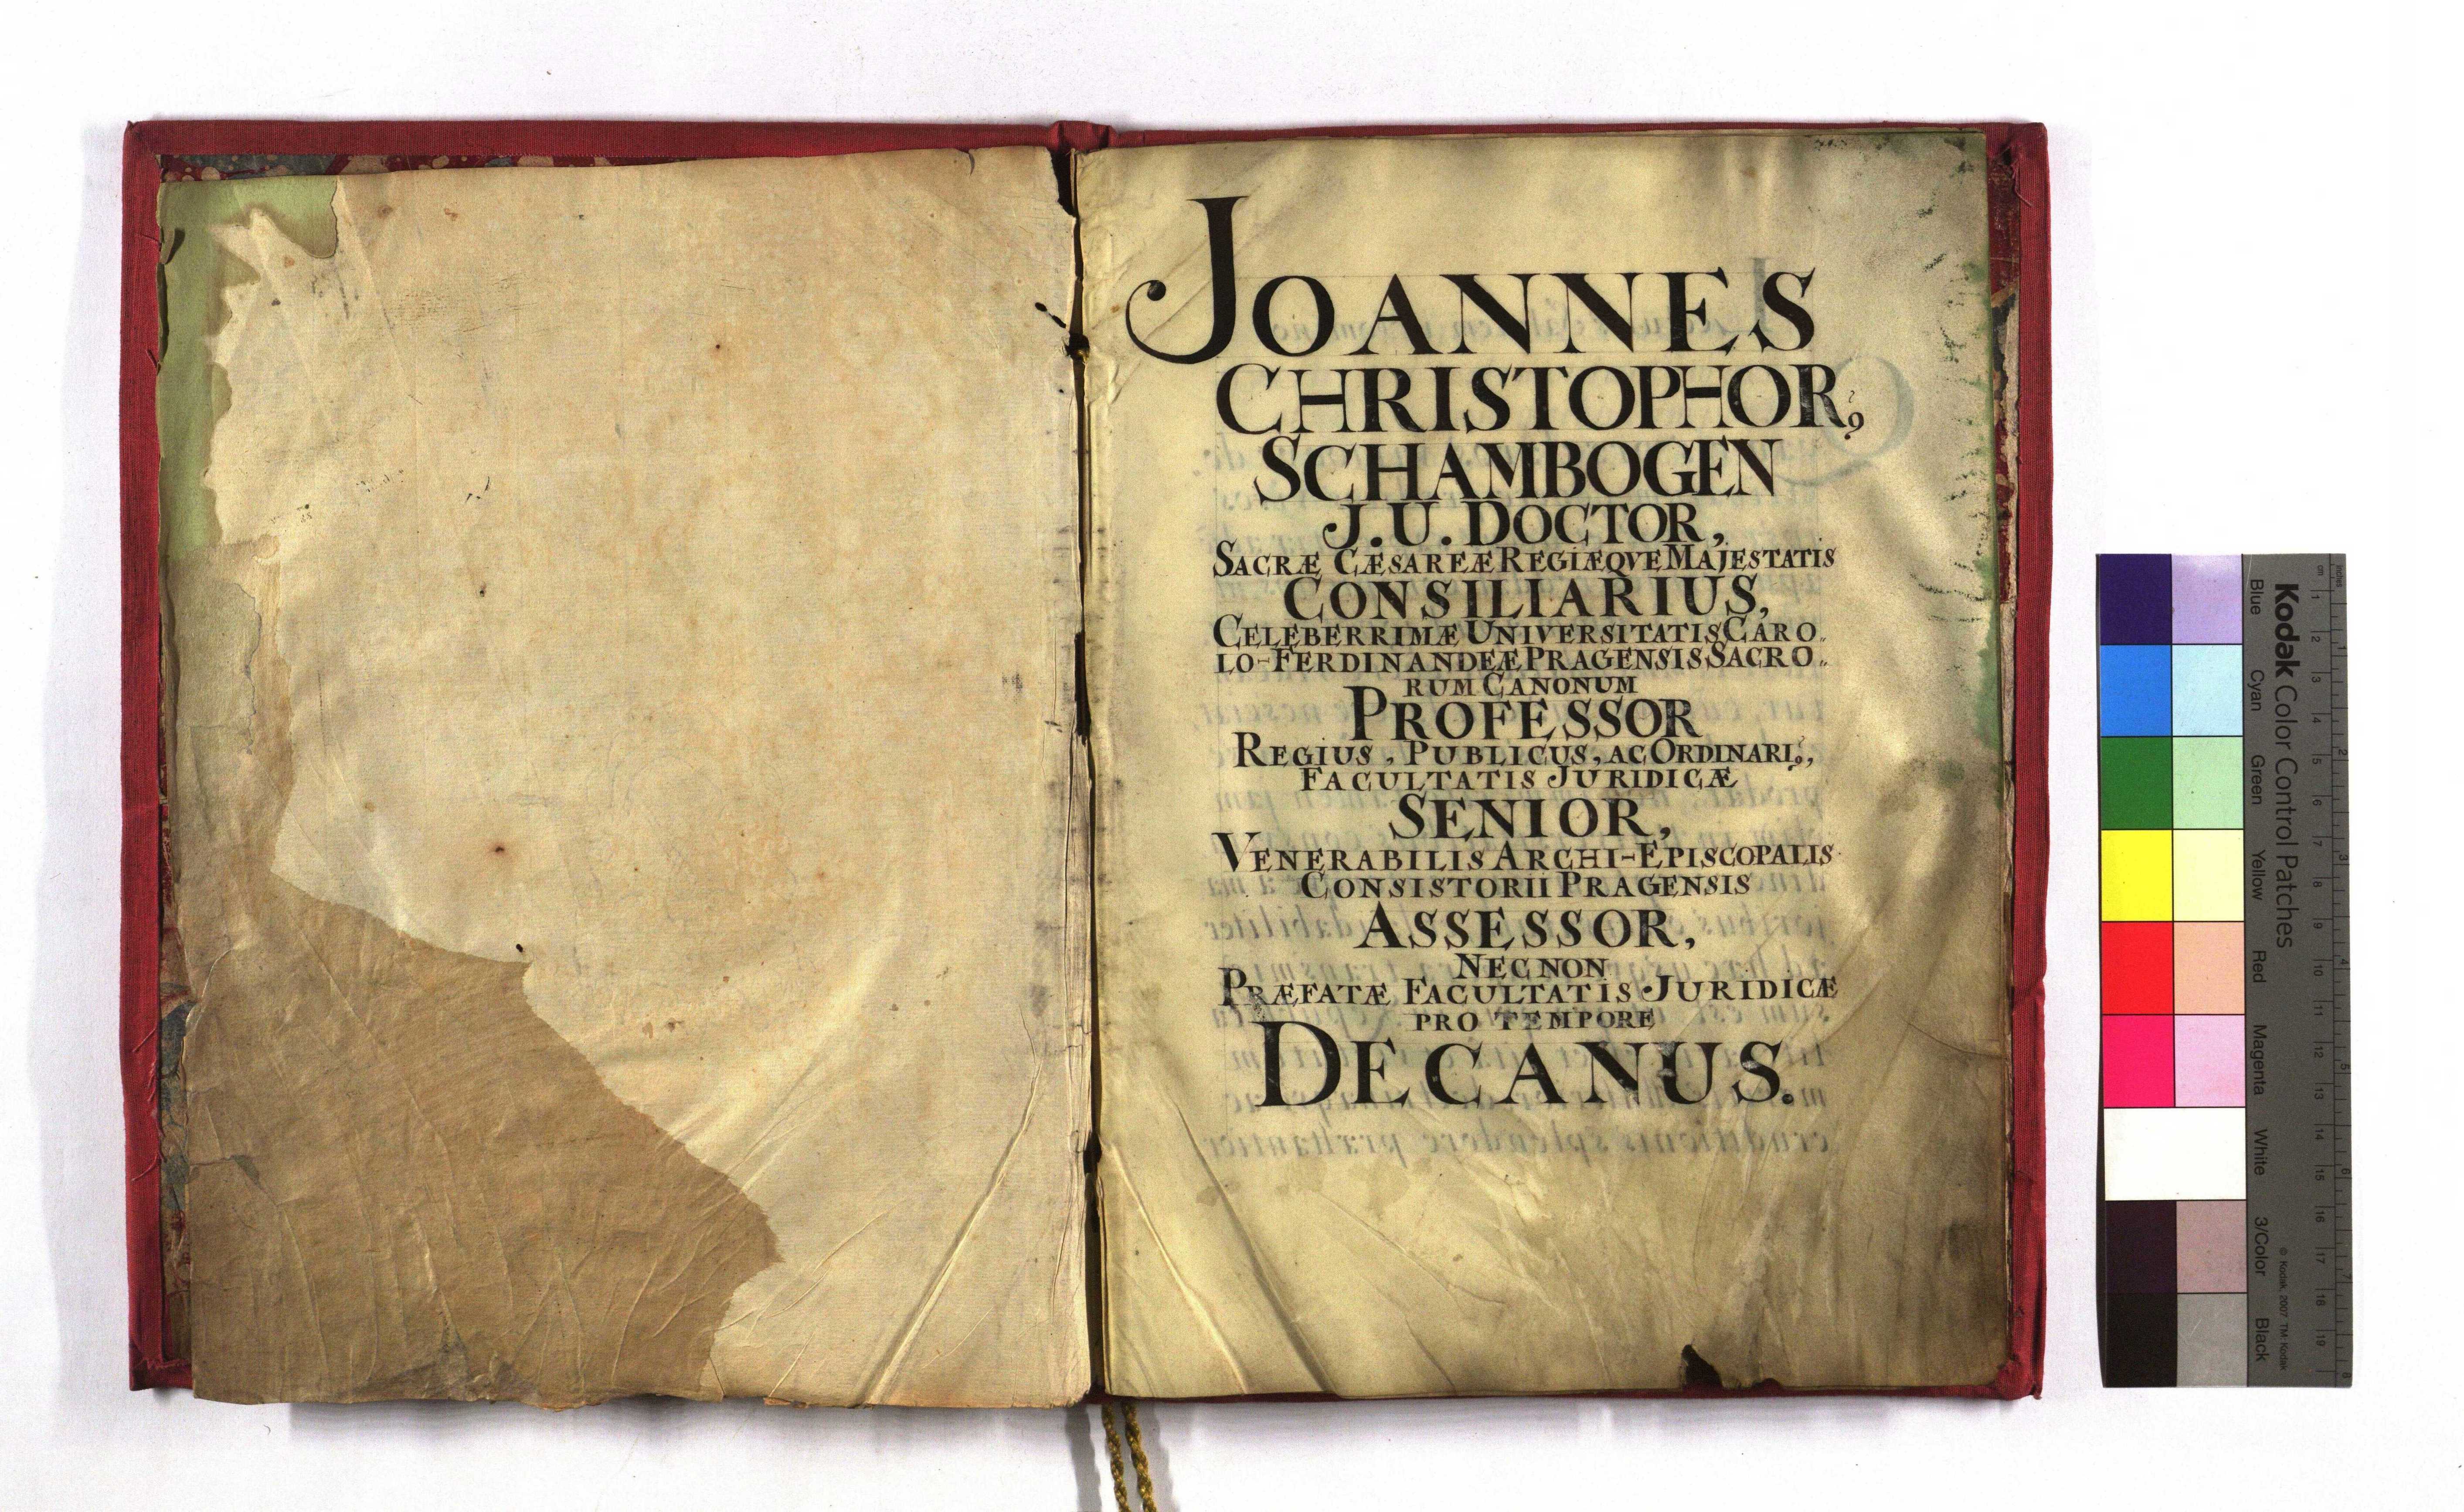 JOANNES
CHRISTOPHOR9
SCHAMBOGEN
J.U. DOCTOR,
SACRÆ CÆSAREÆ REGIÆQVE MAJESTATIS
CONSILIARIUS,
CELEBERRIMÆ UNIVERSITATIS CARO„
LO-FERDINANDEÆ PRAGENSIS SACRO„
RUM CANONUM
PROFESSOR
REGIUS, PUBLICUS, AC ORDINARI9,
FACULTATIS JURIDICÆ
SENIOR,
VENERABILIS ARCHI-EPISCOPALIS
CONSISTORII PRAGENSIS
ASSESSOR,
NEC NON
PRÆFATÆ FACULTATIS JURIDICÆ
PRO TEMPORE
DECANUS.
Kodak Color Control Patches
© Kodak, 2007 TM: Kodak
Blue Cyan Green Yellow Red Magenta White 3/Color Black
cm 1 2 3 4 5 6 7 8 9 10 11 12 13 14 15 16 17 18 19
inches 1 2 3 4 5 6 7 8